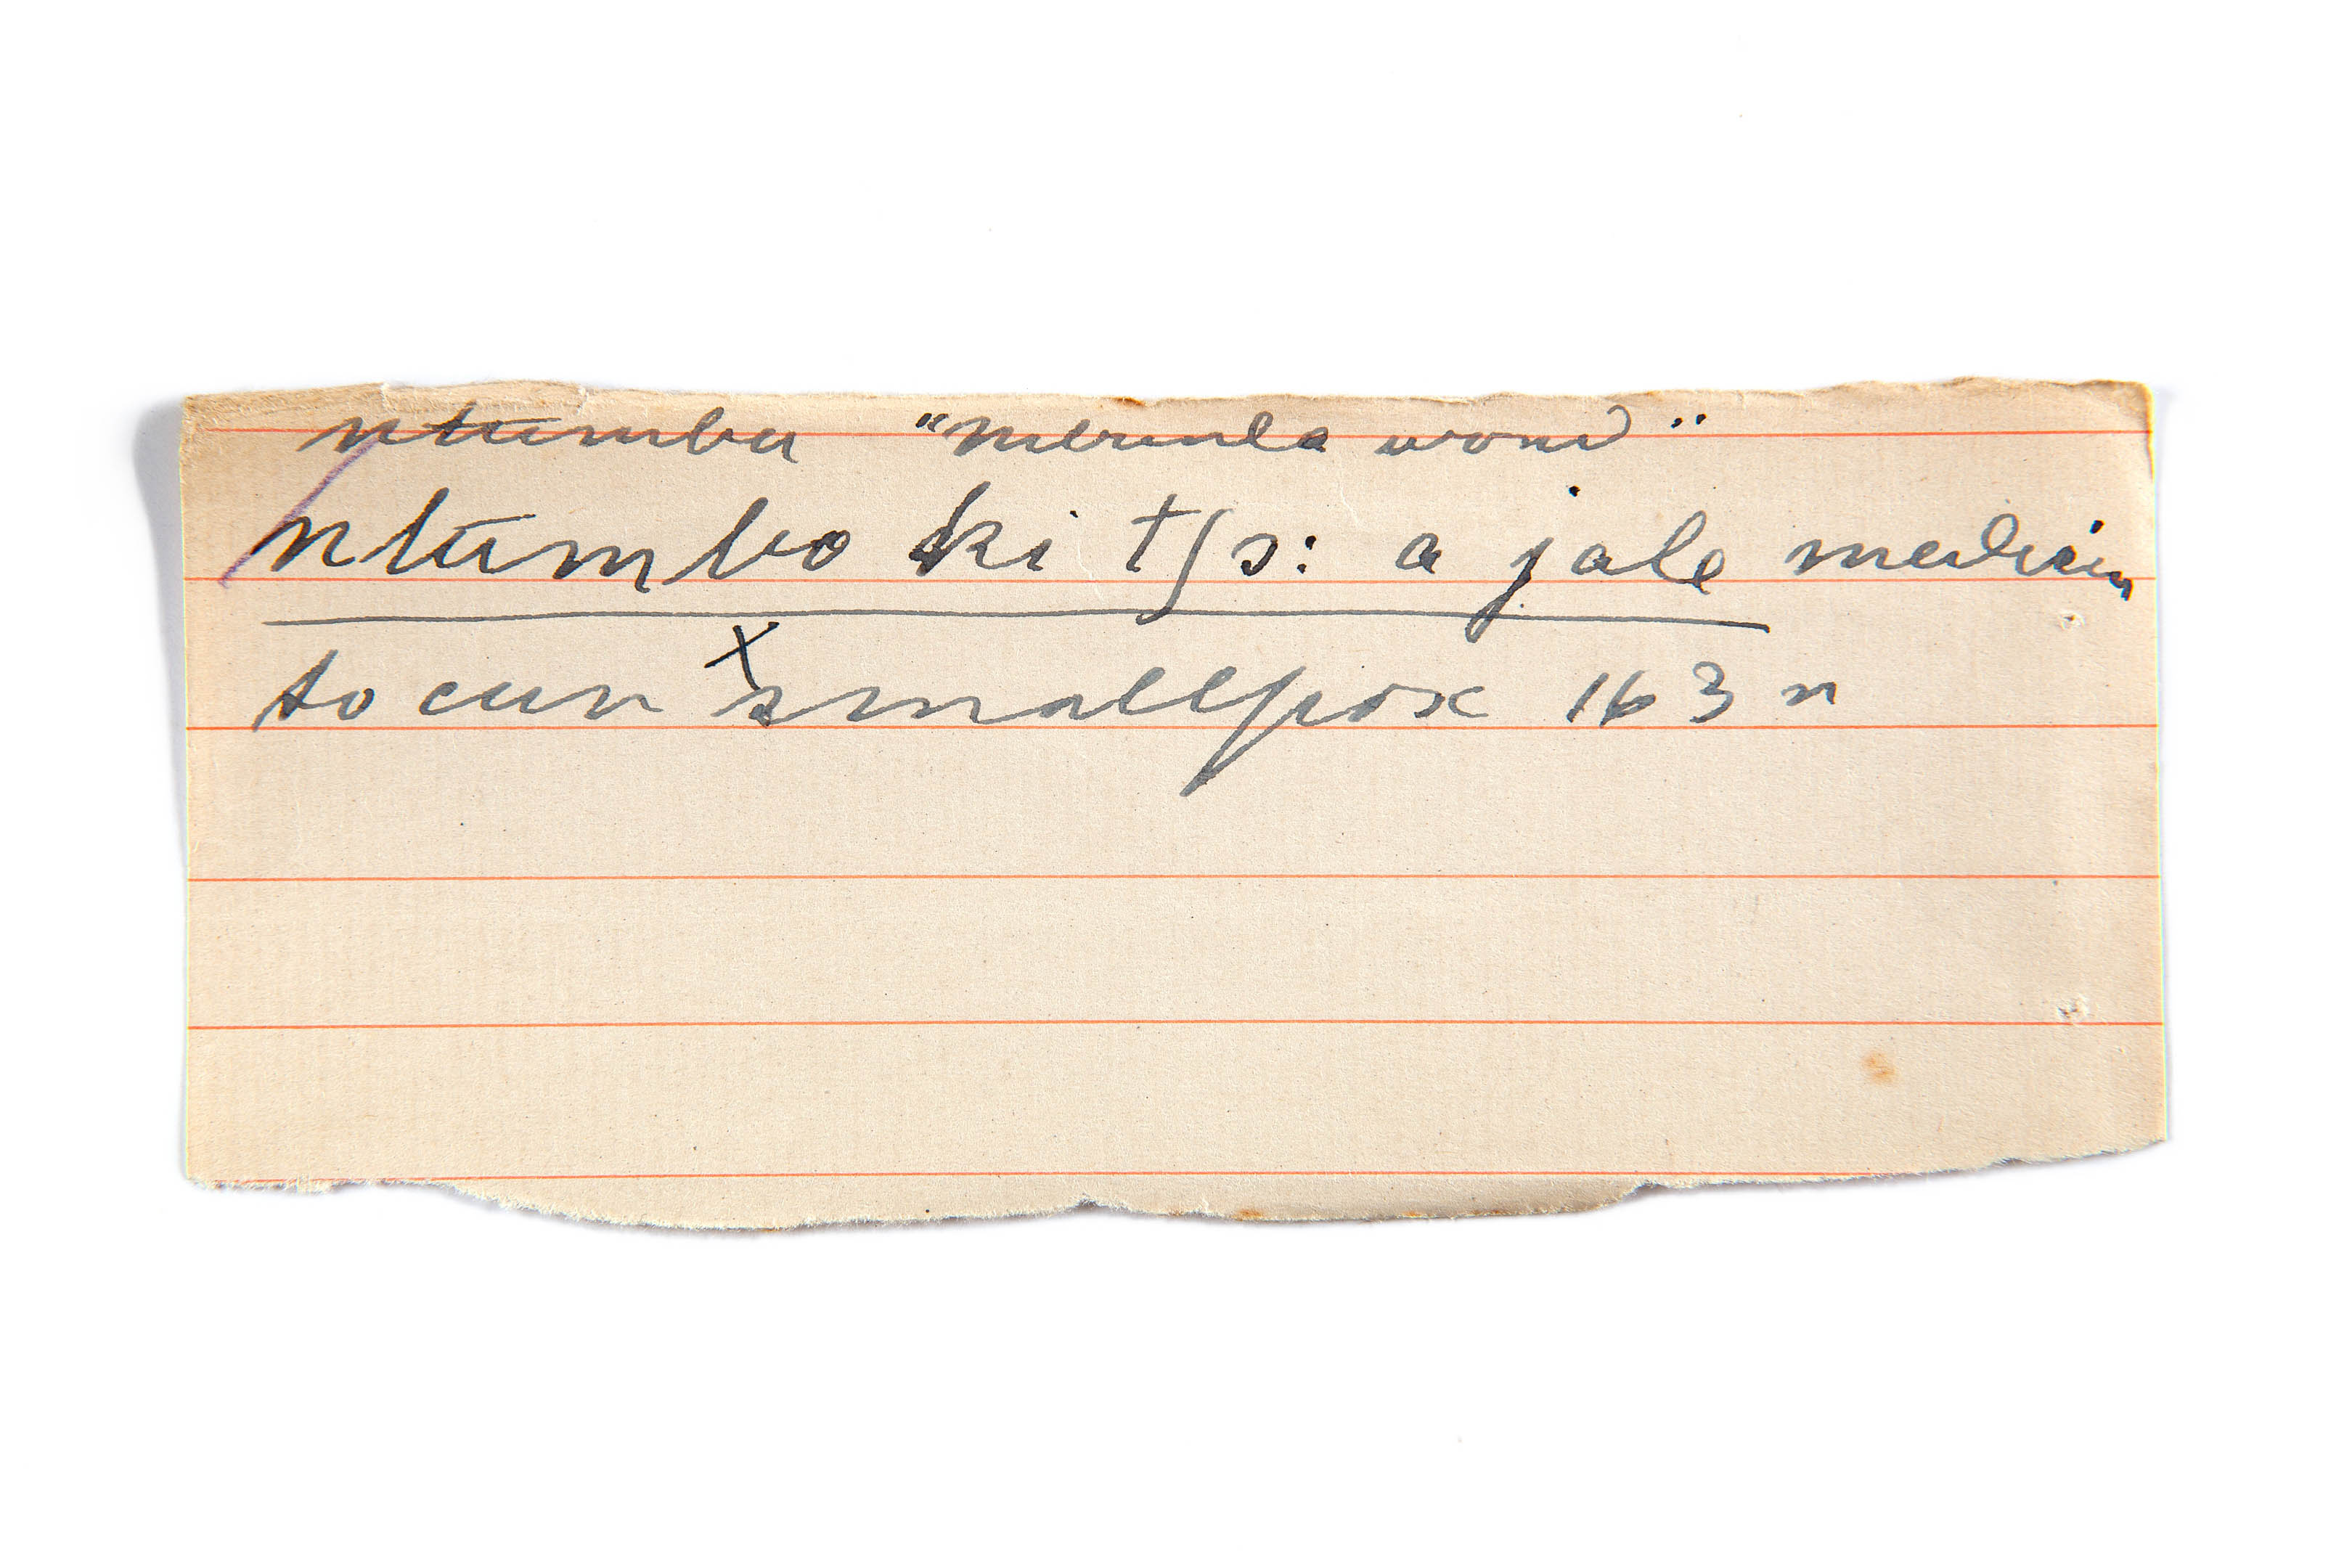 ntumba "merula woni"
ntumbo ki t/s: a jale medicin
to cur x smallpox 163 n